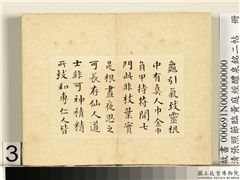 龜引氣致靈根
中有真人巾金巾
負甲持符開七
門此非枝葉實
是根晝夜思之
可長存仙人道
士非可神積精
所致和專仁人皆
3
故書000691N000000000
清張照節臨黃庭經醴泉銘二帖 冊
國立故宮博物院